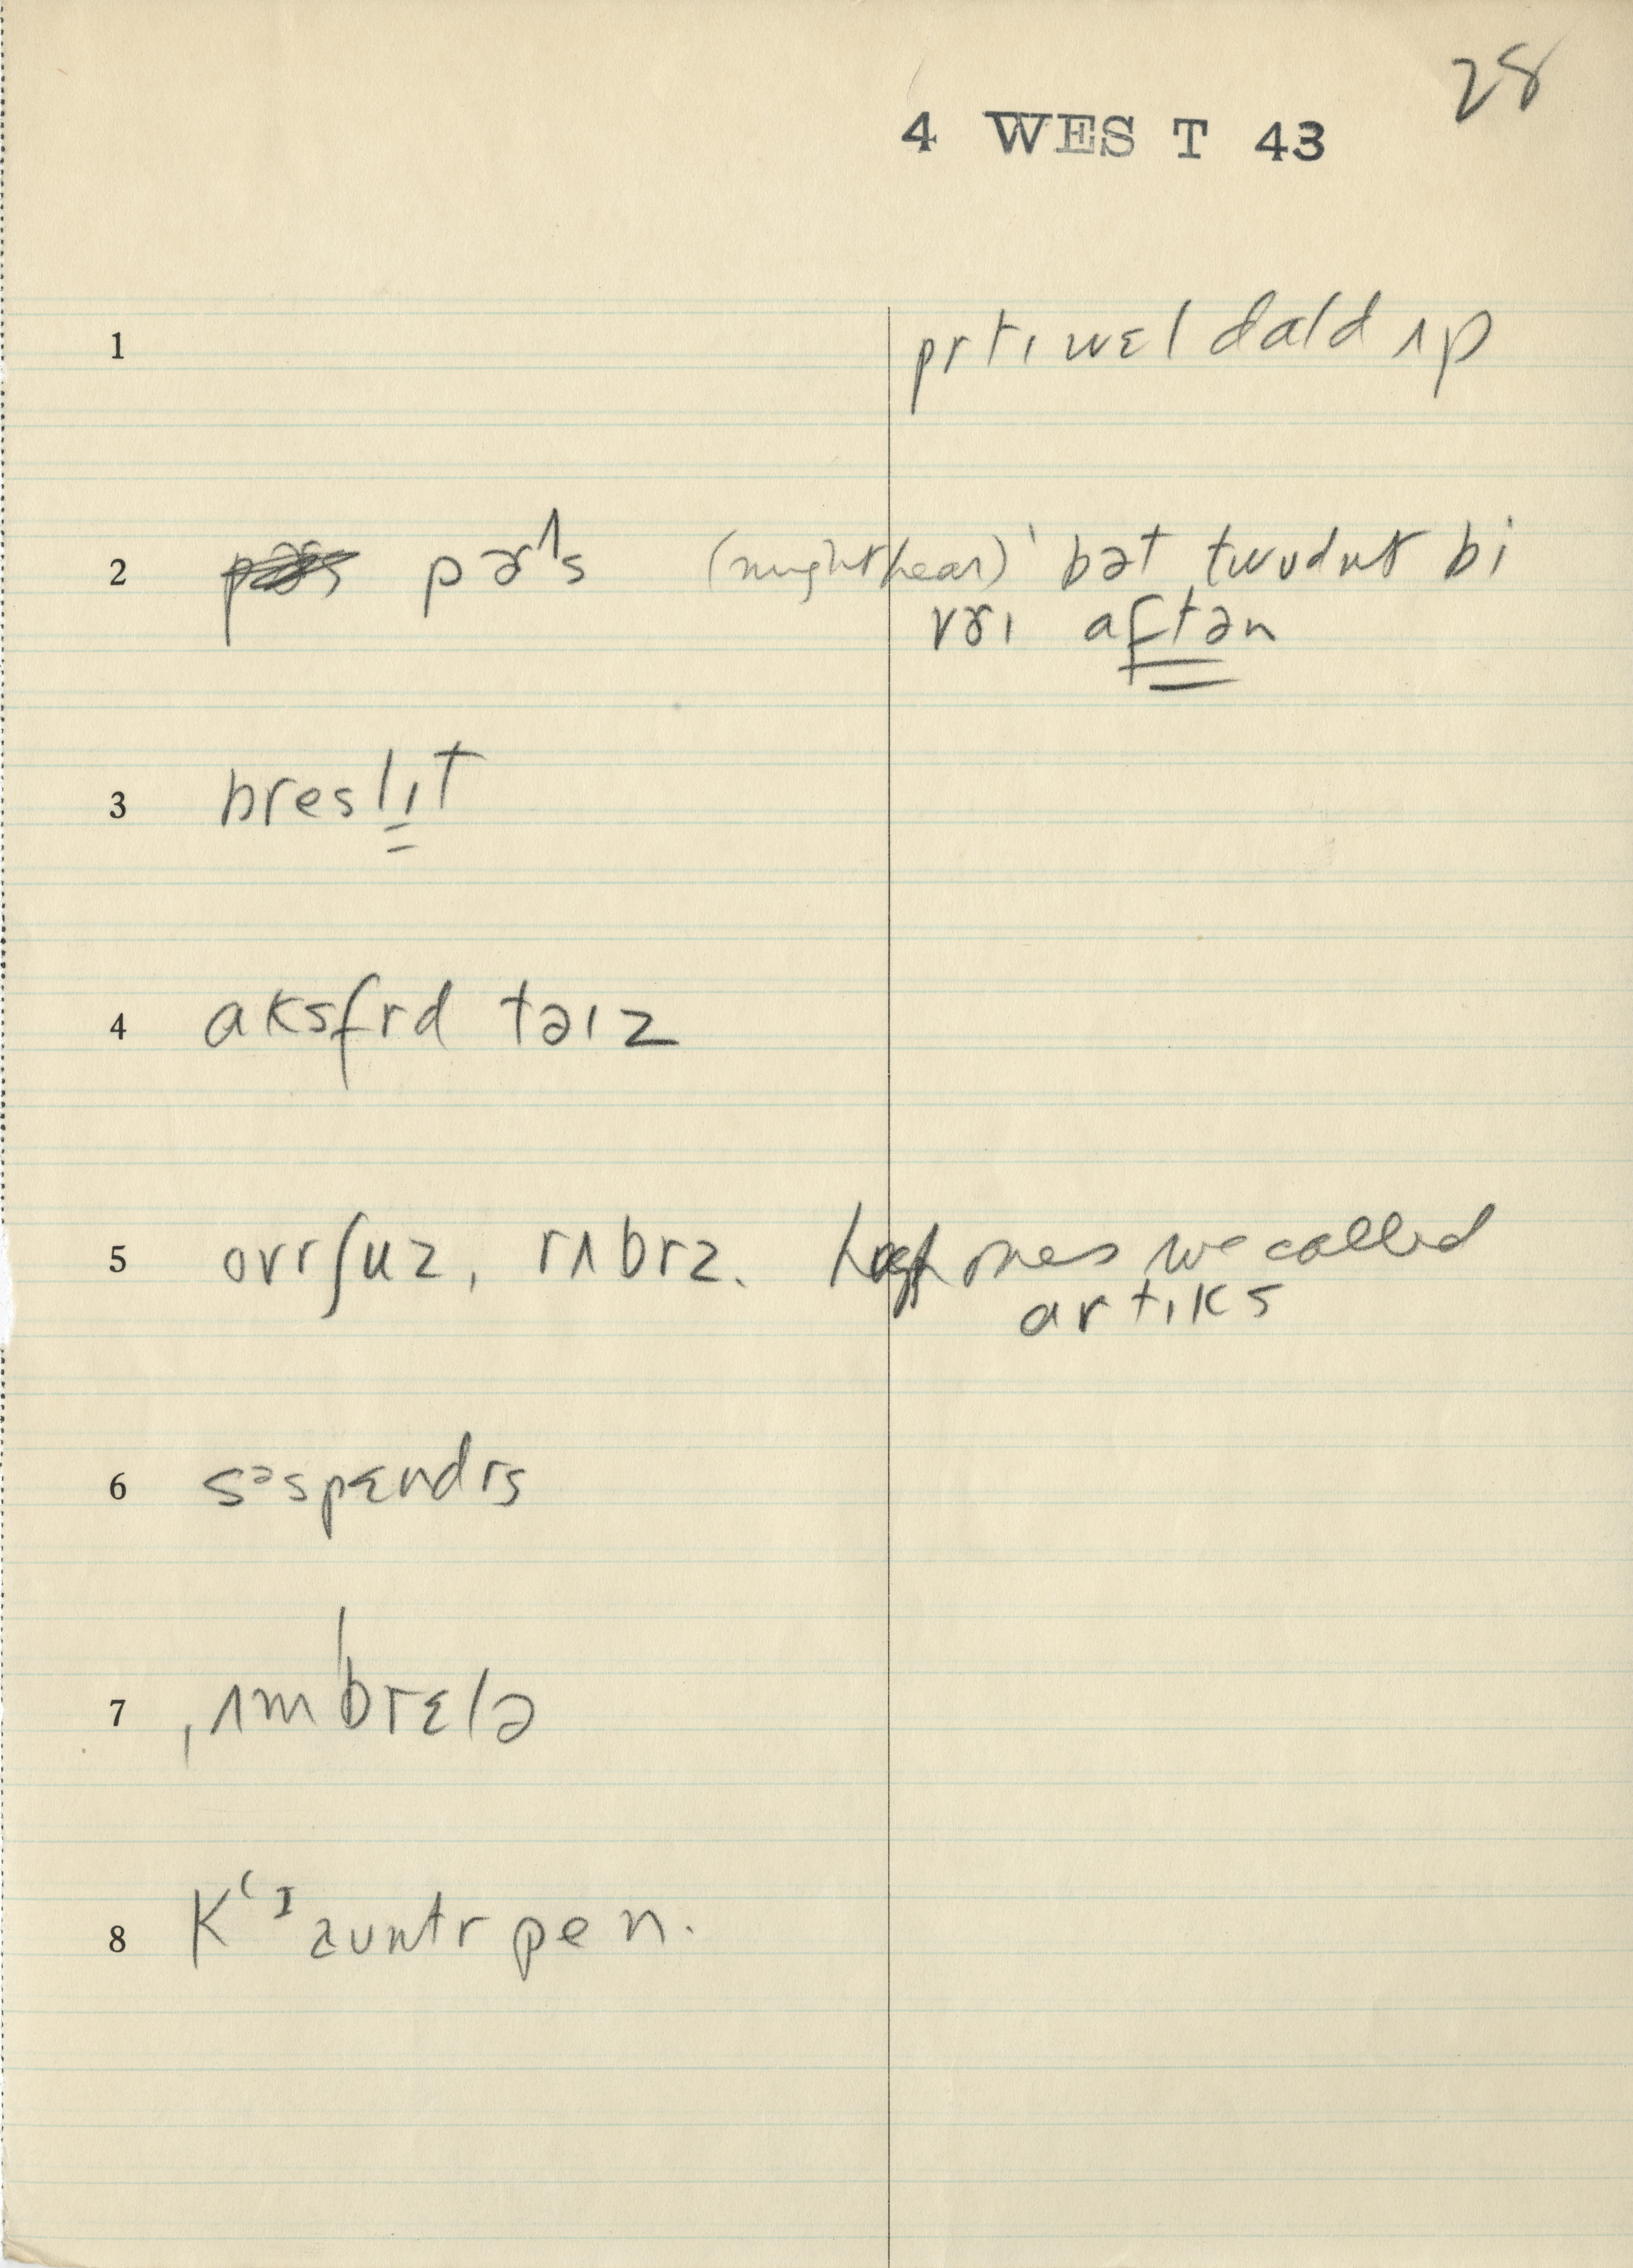 28
4 WEST 43
1 prtɪ wɛl dald ʌp
2 pɚʌs (might hear) ' bət twudnt bi
vɚɪ aftən
3 breslɪt
4 aksfrd təɪz
5 ovrʃuz, rʌbrz. high ones we called
artɪks
6 səspɛndrs
7 ˌʌmˈbrɛlə
8 kʻɪzuntrpen.